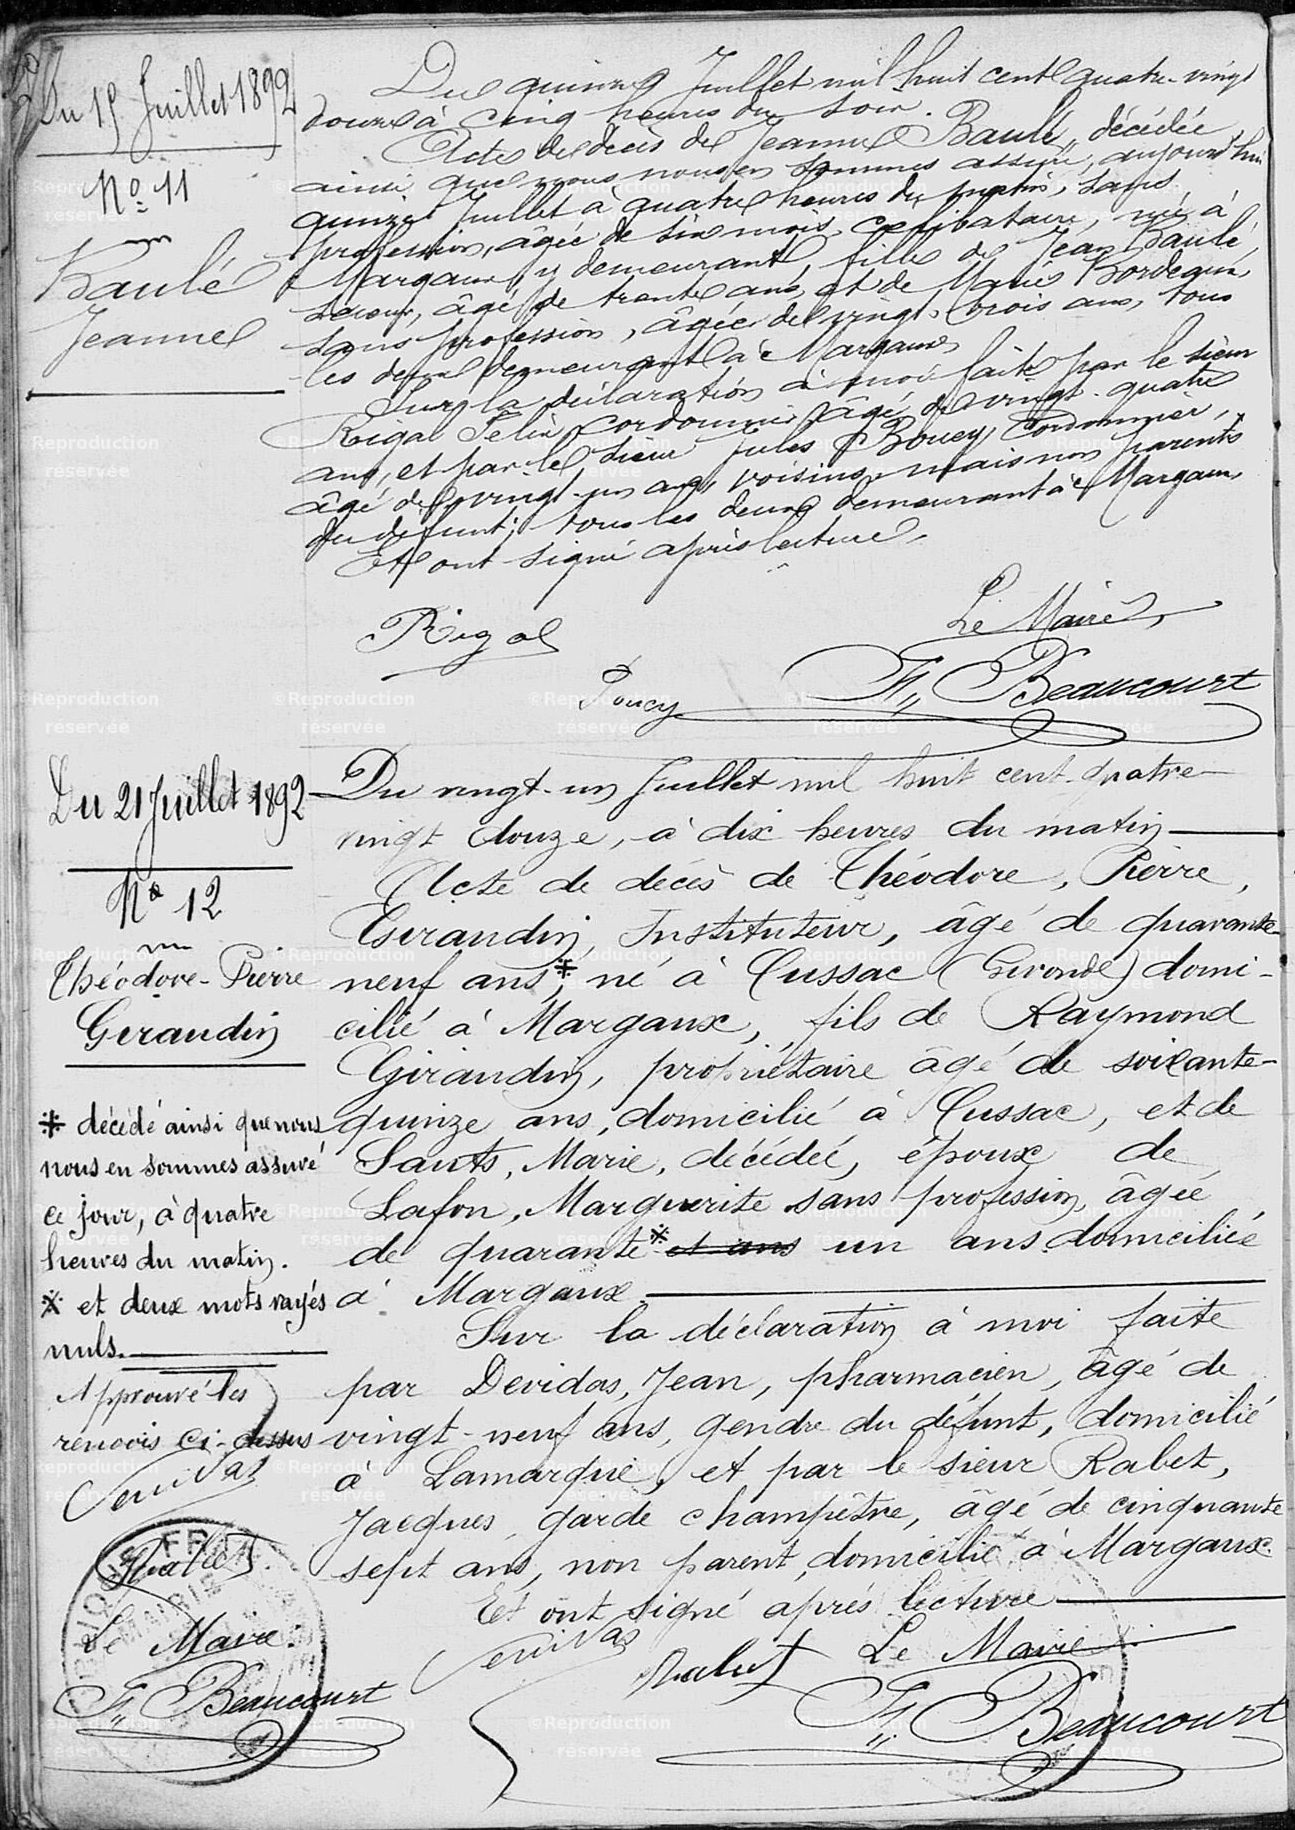 Du 15 Juillet 1892
No 11
Baulé
Jeanne
Du quinze Juillet mil huit cent quatre-vingt
douze à cinq heures du soir.
Acte de décès de Jeanne Baulé, décédée
ainsi que nous nous en sommes assuré, aujourd'hui
quinze Juillet à quatre heures du matin, sans
profession, âgée de six mois, célibataire, née à
Margaux y demeurant, fille de Jean Baulé,
âgé de trente ans et de Marie Bordessin
sans profession, âgée de vingt-trois ans, tous
les deux demeurant à Margaux
Sur la déclaration à moi faite par le sieur
Rigal Félix, cordonnier, âgé de vingt-quatre
ans, et par le sieur Jules Boucy, cordonnier,
âgé de vingt-un ans, voisins mais non parents
du défunt; tous les deux demeurant à Margaux
Et ont signé après lecture.
Rigal
Le Maire
F. Beaucourt
Du 21 Juillet 1892
No 12
Théodore-Pierre
Geraudin
* décédé ainsi que nous
nous en sommes assuré
ce jour, à quatre
heures du matin.
* et deux mots rayés
nuls.
Approuvé les
renvois ci-dessus
Rabet
Le Maire
F. Beaucourt
Du vingt-un Juillet mil huit cent quatre
vingt douze, à dix heures du matin
Acte de décès de Théodore, Pierre,
Geraudin, Instituteur, âgé de quarante-
neuf ans,* né à Cussac (Gironde) domi-
cilié à Margaux, fils de Raymond
Giraudin, propriétaire âgé de soixante-
quinze ans, domicilié à Cussac, et de
Sants, Marie, décédée, époux de
Lafon, Marguerite sans profession, âgée
de quarante * et ans un ans domiciliée
à Margaux
Sur la déclaration à moi faite
par Devidas, Jean, pharmacien, âgé de
vingt-neuf ans, gendre du défunt, domicilié
à Lamarque, et par le sieur Rabet,
Jacques, garde champêtre, âgé de cinquante
sept ans, non parent, domicilié à Margaux.
Et ont signé après lecture
Rabet
Le Maire
F. Beaucourt
MAIRIE
©Reproduction réservée